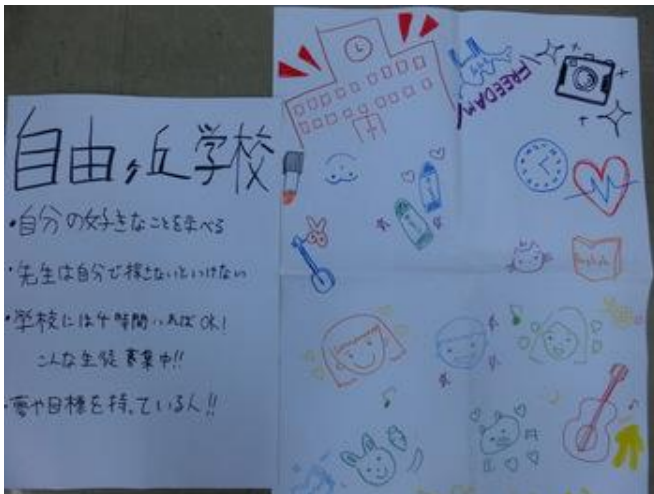 自由ヶ丘学校
・自分の好きなことを学べる
・先生は自分で探さないといけない
・学校には4時間いればOK!
こんな生徒募集中!!
・夢や目標を持っている人!!
FREEDAM